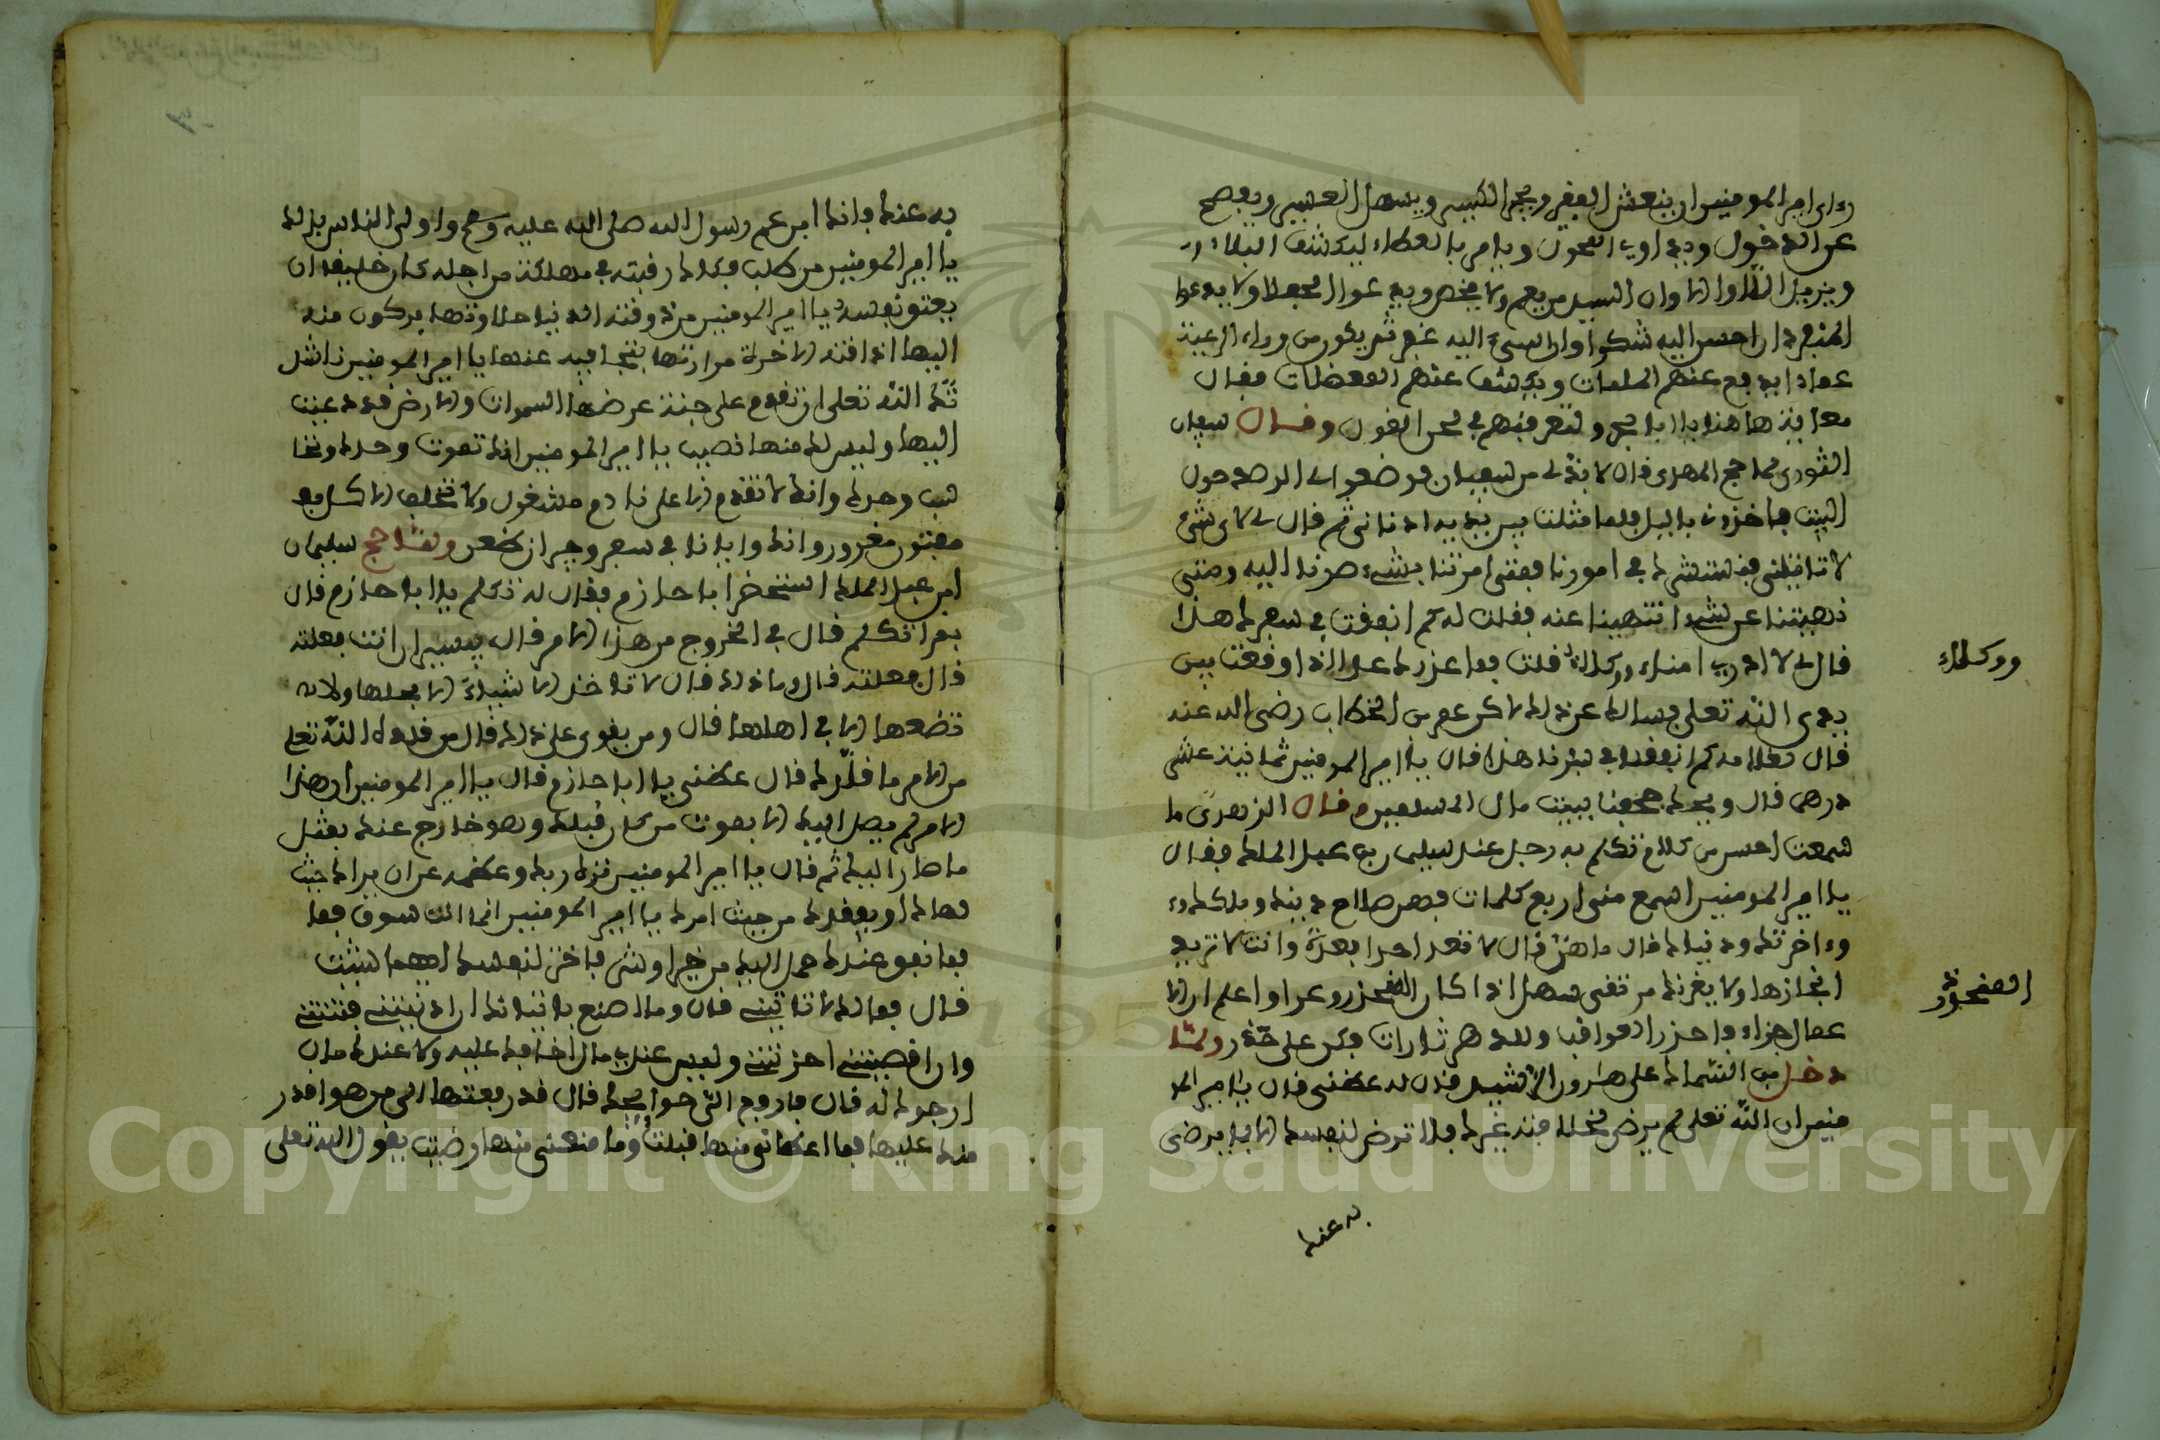 راى امير المومنين ان ينعش الفقير ويجبر الكسير ويسهل العسير ويصفح
عن الدخول ويداوي المحول ويامر بالعطاء ليكشف البلاء
ويزيل اللاوا الا وان السيد من يعم ولا يخص ويدعوا الجفلا ولا يدعوا
النقرى ان احسن اليه شكوا وان اسيء اليه غفر ثم يكون من وراء الرعية
عمادا يدفع عنهم الملمات ويكشف عنهم المعضلات فقال
معاوية هاهنا يا ابا بحر ولتعرفنهم في لحن القول وقال سفيان
الثوري لما حج المهدى قال لا بد لي من سفيان فوضعوا لي الرصد حول
البيت فاخذوني بالليل فلما مثلت بين يديه ادناني ثم قال لي لاي شيء
لا تاتينى فنستشيرك في امورنا فمتى امرتنا بشيء صرنا اليه ومتى
نهيتنا عن شيء انتهينا عنه فقلت له كم انفقت في سفرك هذا
قال لي لا ادري لي امناء ووكلاء قلت فما عذرك غدا اذا وقفت بين
يدي الله تعلى فسالك عن ذلك لاكن عمر بن الخطاب رضي الله عنه
قال لغلامه كم انفقنا في سفرنا هذا قال يا امير المومنين ثمانية عشر
درهما قال ويحك اجحفنا ببيت مال المسلمين وقال الزهرى ما
سمعت احسن من كلام تكلم به رجل عند سليمان بن عبد الملك فقال
يا امير المومنين اسمع منى اربع كلمات فيهن صلاح دينك وملكك
وءاخرتك ودنياك قال ما هن قال لا تعد احدا بعدة وانت لا تريد
انجازها ولا يغرنك مرتقى سهل اذا كان المنحدر وعرا واعلم ان الا
عمال جزاء فاحذر العواقب وللدهر ثارات فكن على حذر ولما
دخل بن السماك على هارون الرشيد قال له عظنى قال يا امير المو
منين ان الله تعلى لم يرض لخلافته غيرك فلا ترض لنفسك الا بما يرضى
به عنك
ووكلاء
المنحدر
به عنك فانك ابن عم رسول الله صلى الله عليه وسلم واولى الناس بذلك
يا امير المومنين من طلب فكاك رقبته في مهلة من اجله كان خليقا ان
يعتق نفسه يا امير المومنين من ذوقته الدنيا حلاوتها بركون منه
اليها اذاقته الاخرة مرارتها بتجافيه عنها يا امير المومنين ناشد
تك الله تعلى ان تقدم على جنة عرضها السموات والارض وقد دعيت
اليها وليس لك منها نصيب يا امير المومنين انك تموت وحدك وتحا
سب وحدك وانك لا تقدم الا على نادم مشغول ولا تخلف الا كل
مفتون مغرور وانك وايانا في سفر وجيران ظعن ولما حج سليمان
ابن عبد الملك استحضر ابا حازم فقال له تكلم يا ابا حازم قال
بم اتكلم قال في الخروج من هذا الامر قال يسير ان انت فعلته
قال فعلته قال وما ذلك قال لا تاخذ الا شيئا الا بحلها ولا
تضعها الا في اهلها قال ومن يقوى على ذلك قال من قلده الله تعلى
من الامر ما قلدك قال عظني يا ابا حازم قال يا امير المومنين ان هذا
الامر لم يصل اليك الا بموت من كان قبلك وهو خارج عنك بمثل
ما صار اليك ثم قال يا امير المومنين نزه ربك وعظمه عن ان يراك حيث
نهاك او يفقدك من حيث امرك يا امير المومنين انما انت سوق فما
فما نفق عندك حمل اليك من خير او شر فاخذ لنفسك ايهما شئت
قال فما لك لا تاتينا قال وما اصنع باتيانك ان ادنيتني فتنتني
وان اقصيتنى احزنتني وليس عندي مال اخافك عليه ولا عندك مال
ارجوك له قال فارفع الي حوايجك قال قد رفعتها الى من هو اقدر
منك عليها فما اعطاني منها قبلت وما منعنى منها رضيت يقول الله تعلى
Copyright © King Saud University